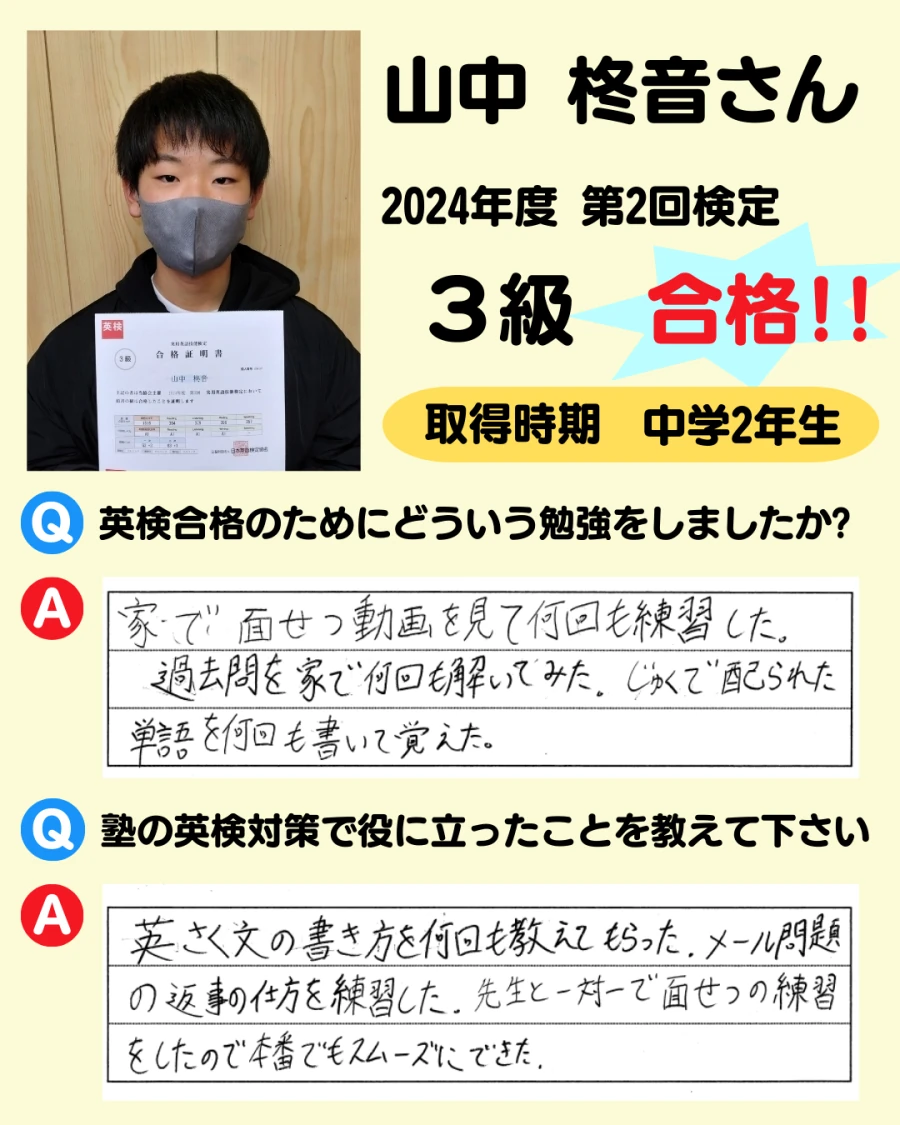 山中 柊音さん
2024年度 第2回検定
3級 合格!!
取得時期 中学2年生
英検
3級
合格証明書
山中 柊音
Q 英検合格のためにどういう勉強をしましたか?
A 家で面せつ動画を見て何回も練習した。
過去問を家で何回も解いてみた。じゅくで配られた
単語を何回も書いて覚えた。
Q 塾の英検対策で役に立ったことを教えて下さい
A 英さく文の書き方を何回も教えてもらった.メール問題
の返事の仕方を練習した.先生と一対一で面せつの練習
をしたので本番でもスムーズにできた.